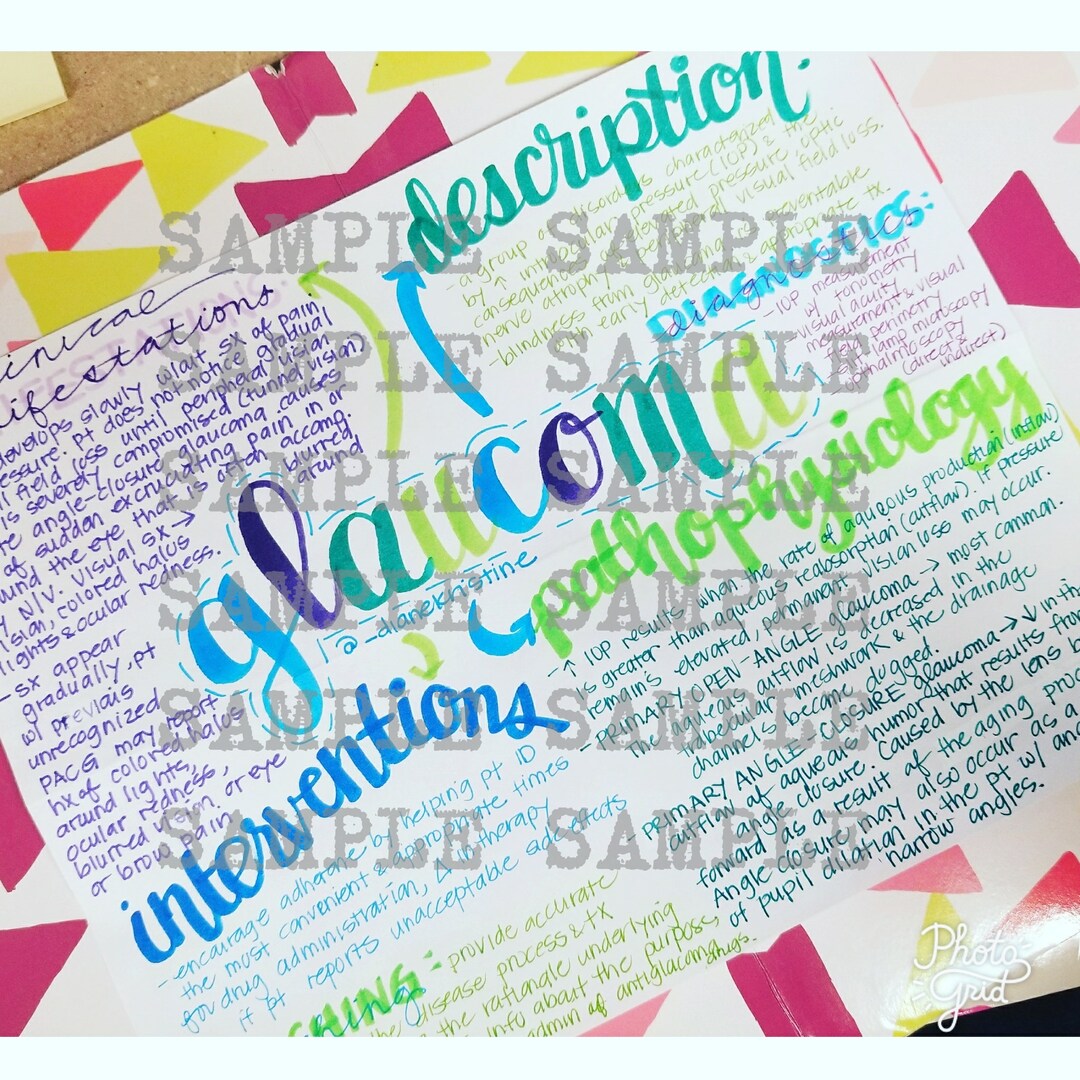 description:
- a group of disorders characterized
by ↑ intraocular pressure (IOP) & the
consequences of elevated pressure, optic
nerve atrophy & peripheral visual field loss.
- blindness from glaucoma is preventable
with early detection & appropriate tx.
DIAGNOSTICS:
diagnostics
- IOP measurement
w/ tonometry
visual acuity
measurement & visual
field perimetry
slit lamp microscopy
opthalmoscopy
(direct & indirect)
inical
ifestations
develops slowly w/out sx of pain
essure. pt does not notice gradual
l field loss until peripheral vision
is severely compromised (tunnel vision)
re angle-closure glaucoma causes
of suddan excrutiating pain in or
und the eye that is often accamp.
y N/V. Visual sx → blurred
ision, colored halos around
lights & ocular redness.
- sx appear
gradually, pt
w/ previous
unrecognized
PACG may report
hx of colored halos
around lights,
ocular redness,
blurred vision, or eye
or brow pain.
glaucoma
@_alanekristine
pathophysiology
- ↑ IOP results when the rate of aqueous production (inflow)
is greater than aqueous reabsorption (outflow). If pressure
remains elevated, permanent vision loss may occur.
- PRIMARY OPEN-ANGLE glaucoma → most common.
The aqueous outflow is decreased in the
trabecular meshwork & the drainage
channels become clogged
- PRIMARY ANGLE CLOSURE glaucoma → ↓ in the
outflow of aqueous humor that results from
angle closure. Caused by the lens b
forward as a result of the aging proc
Angle closure may also occur as a
of pupil dilation in the pt w/ ana
narrow angles.
interventions
- encourage adherance by helping pt ID
the most convenient & appropriate times
for drug administration, Δ in therapy
if pt reports unacceptable side effects
CHING: provide accurate
the disease process & tx
& the rationale underlying
info about the purpose
admin of antiglaucoma drugs.
SAMPLE SAMPLE
SAMPLE SAMPLE
SAMPLE SAMPLE
SAMPLE SAMPLE
SAMPLE SAMPLE
SAMPLE SAMPLE
Photo
Grid